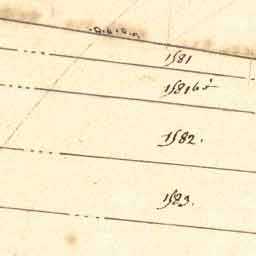 1581
1581bis
1582.
1583.